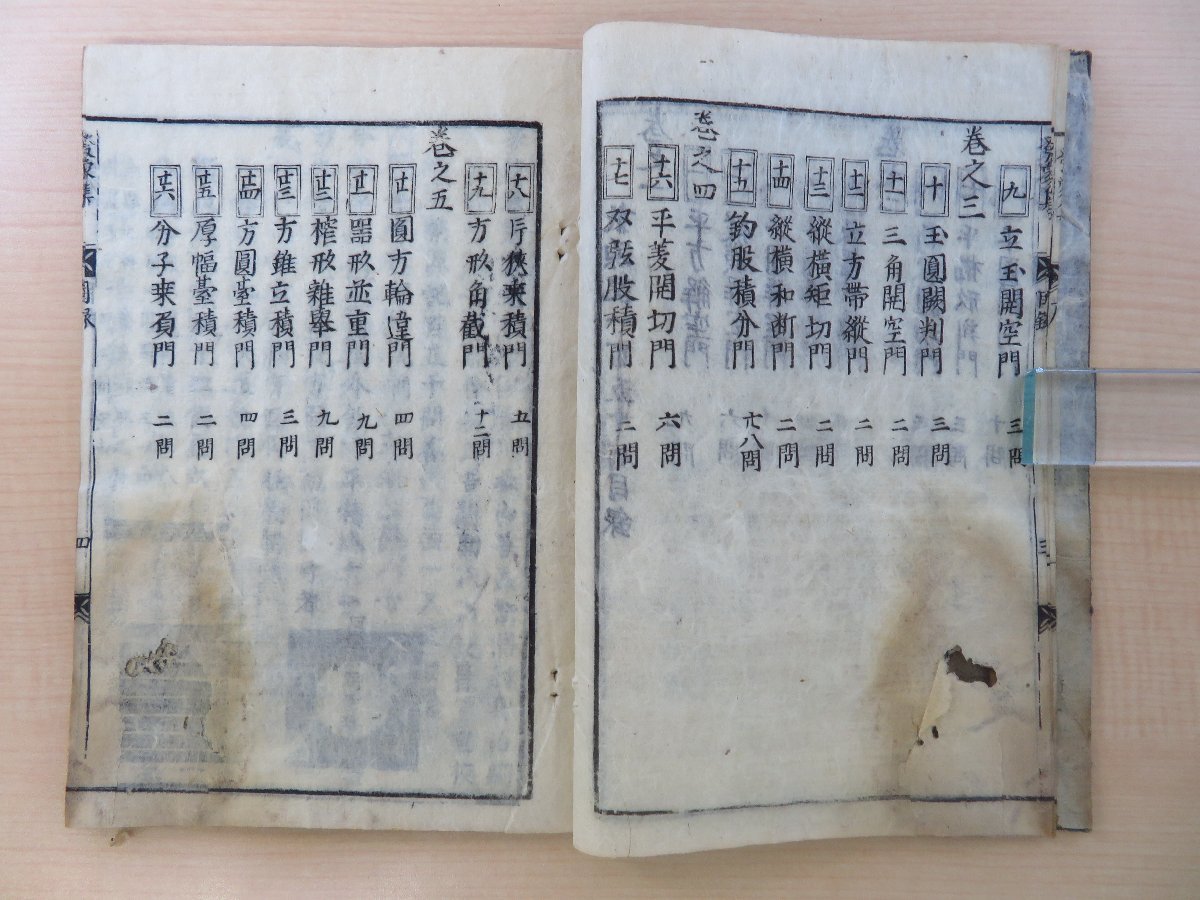 九 立玉開空門 三問
卷之三
十 玉圓闕判門 三問
十一 三角開空門 二問
十二 立方帶縱門 二問
十三 縱橫矩切門 二問
十四 縱橫和断門 二問
十五 鈎股積分門 廿八問
卷之四
十六 平菱開切門 六問
十七 双弦股積門 二問
十八 片狹来積門 五問
十九 方形角截門 十二問
卷之五
廿 圓方輪違門 四問
廿一 噐形並重門 九問
廿二 榁形雜舉門 九問
廿三 方錐立積門 三問
廿四 方圓臺積門 四問
廿五 厚幅臺積門 二問
廿六 分子来負門 二問
目録
四